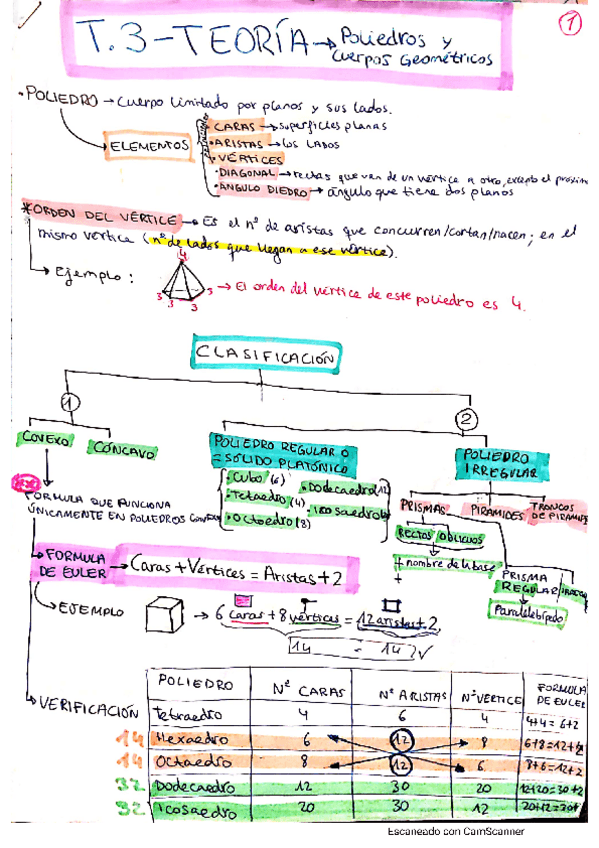 1
T.3-TEORÍA → Poliedros y
Cuerpos Geométricos
• POLIEDRO → Cuerpo limitado por planos y sus lados.
ELEMENTOS
CARAS → superficies planas
• ARISTAS → los LADOS
• VÉRTICES
• DIAGONAL → rectas que van de un vértice a otro, excepto el próximo
• ÁNGULO DIEDRO → ángulo que tiene dos planos
*ORDEN DEL VÉRTICE → Es el nº de aristas que concurren/cortan/nacen, en el
mismo vértice (nº de lados que llegan a ese vértice).
→ Ejemplo:
4
3 3 3 3
→ El orden del vértice de este poliedro es 4.
CLASIFICACIÓN
1
2
COVEXO
CÓNCAVO
POLIEDRO REGULAR O
= SÓLIDO PLATÓNICO
• Cubo (6)
• Tetaedro (4)
• Octoedro (8)
• Dodecaedro
• Icosaedro
POLIEDRO
IRREGULAR
PRISMAS
PIRAMIDES
TRONCOS
DE PIRAMIDE
RECTOS OBLICUOS
+ nombre de la base
+
PRISMA
REGULAR
Paralelebípedo
FORMULA QUE FUNCIONA
ÚNICAMENTE EN POLIEDROS
FORMULA
DE EULER
→ Caras + Vértices = Aristas + 2
→ EJEMPLO
→ 6 caras + 8 vértices = 12 aristas + 2
14 = 14 ✓
→ VERIFICACIÓN
POLIEDRO Nº CARAS Nº ARISTAS Nº VERTICE FORMULA DE EULER
tetraedro 4 6 4 4+4=6+2
14 Hexaedro 6 12 8 6+8=12+2
14 Octaedro 8 12 6 8+6=12+2
32 Dodecaedro 12 30 20 12+20=30+2
32 Icosaedro 20 30 12 20+12=30+
Escaneado con CamScanner